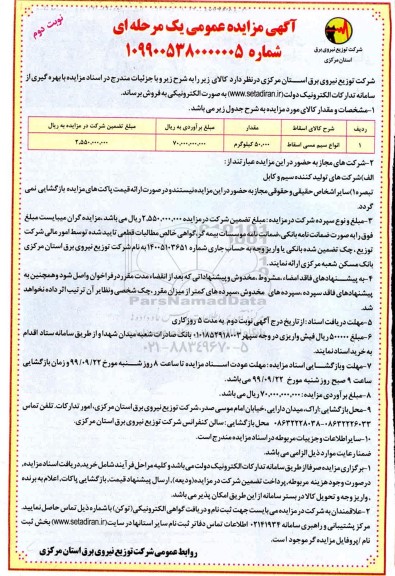 نوبت دوم
آگهی مزایده عمومی یک مرحله ای
شماره ۱۰۹۹۰۰۵۳۸۰۰۰۰۰۰۵
شرکت توزیع نیروی برق
استان مرکزی
شرکت توزیع نیروی برق استان مرکزی درنظر دارد کالای زیر را به شرح زیر و با جزئیات مندرج در اسناد مزایده با بهره گیری از
سامانه تدارکات الکترونیک دولت (www.setadiran.ir) به صورت الکترونیکی به فروش برساند.
۱-مشخصات و مقدار کالای مورد مزایده به شرح جدول زیر می باشد.
ردیف شرح کالای اسقاط مقدار مبلغ برآوردی به ریال مبلغ تضمین شرکت در مزایده به ریال
۱ انواع سیم مسی اسقاط ۵۰,۰۰۰ کیلوگرم ۷۰,۰۰۰,۰۰۰,۰۰۰ ۲,۵۵۰,۰۰۰,۰۰۰
۲-شرکت های مجاز به حضور در این مزایده عبارتند از:
الف)شرکت های تولید کننده سیم و کابل
تبصره۱)سایر اشخاص حقیقی و حقوقی مجاز به حضور در این مزایده نیستند و در صورت ارائه قیمت پاکت های مزایده بازگشایی نمی
گردد.
۳-مبلغ و نوع سپرده شرکت در مزایده: مبلغ تضمین شرکت در مزایده ۲,۵۵۰,۰۰۰,۰۰۰ ریال می باشد .مزایده گران میبایست مبلغ
فوق را به صورت ضمانت نامه بانکی،ضمانتی نامه موسسات بیمه گر،گواهی خالص مطالبات قطعی تایید شده توسط امور مالی شرکت
توزیع ، چک تضمین شده بانکی یا واریز وجه به حساب جاری شماره ۱۴۰۰۵۱۰۳۶۵۱ به نام شرکت توزیع نیروی برق استان مرکزی
بانک مسکن شعبه مرکزی ارائه نمایند.
۴-به پیشنهادهای فاقد امضاء ،مشروط ،مخدوش و پیشنهاداتی که بعد از انقضاء مدت مقرر در فراخوان واصل شود و همچنین به
پیشنهادهای فاقد سپرده ،سپرده های مخدوش ،سپرده های کمتر از میزان مقرر،چک شخصی و نظایر آن ترتیب اثر داده نخواهد
شد.
۵-مهلت دریافت اسناد :از تاریخ درج آگهی نوبت دوم به مدت ۵ روز کاری
۶-مبلغ ۵۰۰۰۰۰ ریال فیش واریزی در وجه سپهر ۰۱۰۱۸۵۲۹۱۸۰۰۳ بانک صادرات شعبه میدان شهدا و از طریق سامانه ستاد اقدام
به خرید اسناد نمایند.
۷-مهلت و بازگشایی اسناد مزایده : مهلت عودت اسناد مزایده تا ساعت ۸ روز شنبه مورخ ۹۹/۰۹/۲۲ و زمان بازگشایی
ساعت ۹ صبح روز شنبه مورخ ۹۹/۰۹/۲۲ می باشد.
۸-مبلغ برآوردی مزایده: ۷۰,۰۰۰,۰۰۰,۰۰۰ ریال می باشد.
۹-محل بازگشایی :اراک،میدان دارایی،خیابان امام موسی صدر، شرکت توزیع نیروی برق استان مرکزی، امور تدارکات. تلفن تماس
۰۸۶۳۲۲۲۶۰۳۳-۰۸۶۳۲۲۲۸۰۳۸ محل بازگشایی : سالن کنفرانس شرکت توزیع نیروی برق استان مرکزی.
۱۰-سایر اطلاعات و جزییات مربوطه در اسناد مزایده مندرج است.
ضمنا رعایت موارد ذیل الزامی می باشد.
۱-برگزاری مزایده صرفا از طریق سامانه تدارکات الکترونیک دولت می باشد و کلیه مراحل فرآیند شامل خرید،دریافت اسناد مزایده،
در صورت وجود هزینه مربوطه،پرداخت تضمین شرکت در مزایده(ودیعه)،ارسال پیشنهاد قیمت،بازگشایی پاکات، اعلام به برنده
،واریز وجه و تحویل کالا در بستر سامانه از این طریق امکان پذیر می باشد.
۲-علاقمندان به شرکت در مزایده می بایست جهت ثبت نام و دریافت گواهی الکترونیکی (توکن) با شماره ذیل تماس حاصل نمایید.
مرکز پشتیبانی و راهبری سامانه ۰۲۱۴۱۹۳۴ اطلاعات تماس دفاتر ثبت نام سایر استانها در سایت(www.setadiran.ir) بخش ثبت
نام /پروفایل مزایده گر موجود است.
روابط عمومی شرکت توزیع نیروی برق استان مرکزی
ParsNamadData
۰۲۱-۸۸۳۴۹۶۷۰-۵